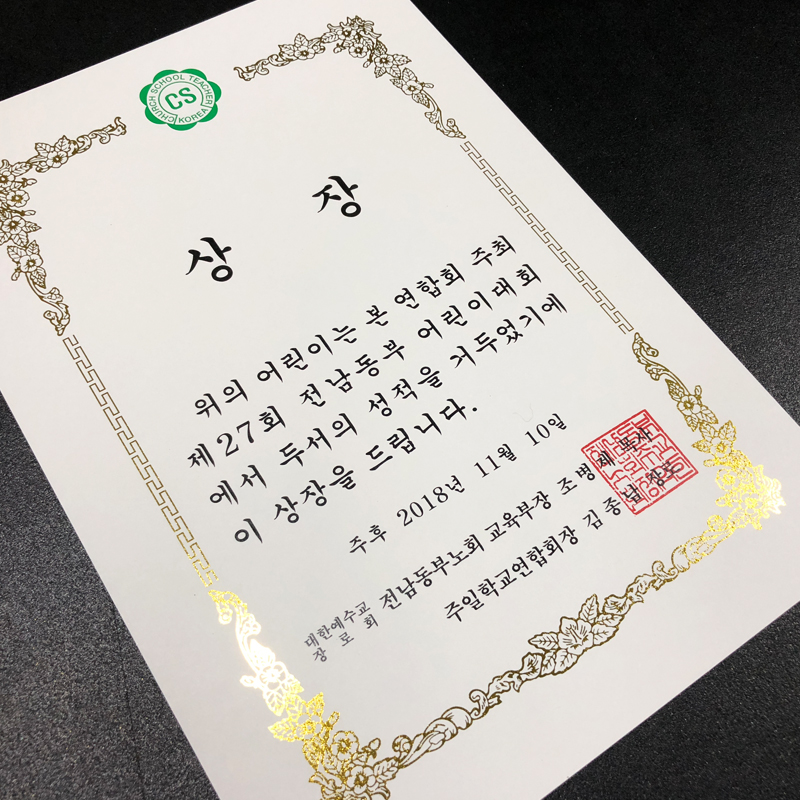 CHURCH SCHOOL TEACHER
CS
KOREA
상 장
위의 어린이는 본 연합회 주최
제27회 전남동부 어린이대회
에서 두서의 성적을 거두었기에
이 상장을 드립니다.
주후 2018년 11월 10일
대한예수교
장로회
전남동부노회 교육부장 조병 목사
주일학교연합회장 김종 장로